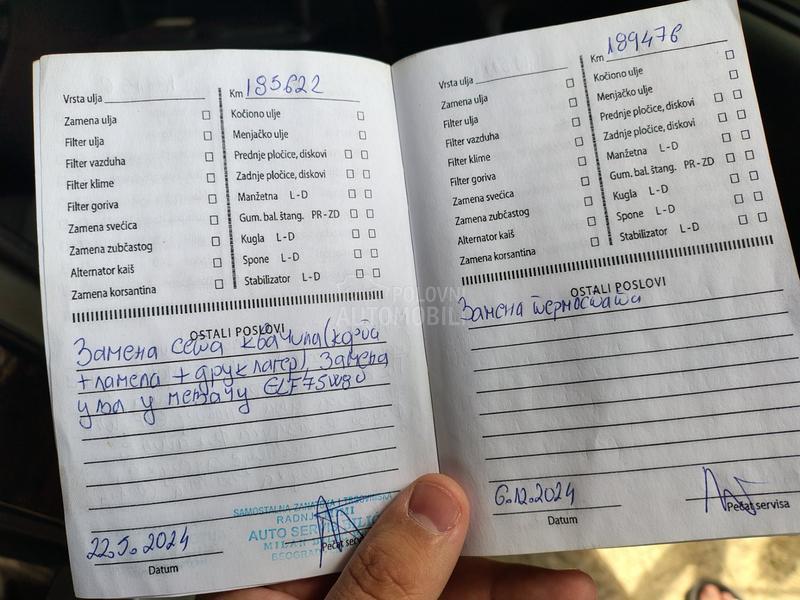 Vrsta ulja
Km 185622
Zamena ulja
Filter ulja
Filter vazduha
Filter klime
Filter goriva
Zamena svećica
Zamena zubčastog
Alternator kaiš
Zamena korsantina
Kočiono ulje
Menjačko ulje
Prednje pločice, diskovi
Zadnje pločice, diskovi
Manžetna L-D
Gum. bal. štang. PR-ZD
Kugla L-D
Spone L-D
Stabilizator L-D
OSTALI POSLOVI
Замена сета квачила (корпа
+ ламела + друк лагер) Замена
уља у мењачу ELF 75W80
22.5.2024
Datum
SAMOSTALNA ZANATSKA I TRGOVINSKA
RADNJA
AUTO SERVIS
MILAN
BEOGRAD
Pečat servisa
Vrsta ulja
Km 189476
Zamena ulja
Filter ulja
Filter vazduha
Filter klime
Filter goriva
Zamena svećica
Zamena zubčastog
Alternator kaiš
Zamena korsantina
Kočiono ulje
Menjačko ulje
Prednje pločice, diskovi
Zadnje pločice, diskovi
Manžetna L-D
Gum. bal. štang. PR-ZD
Kugla L-D
Spone L-D
Stabilizator L-D
OSTALI POSLOVI
Замена термостата
6.12.2024
Datum
Pečat servisa
POLOVNI
AUTOMOBILI